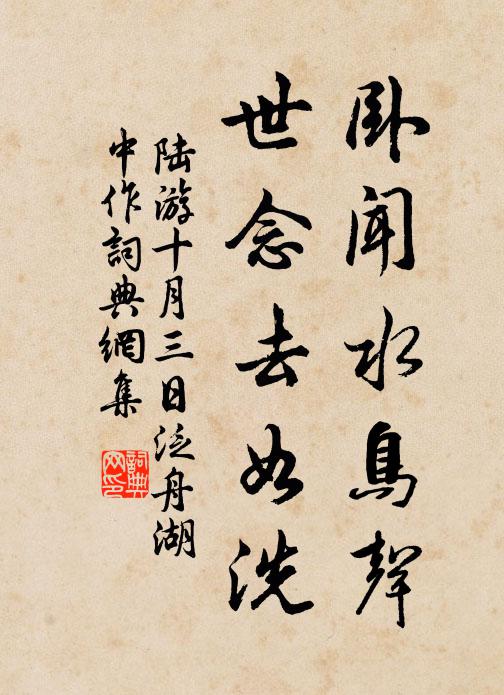 卧聞水鳥聲
世念去如洗
陸游十月三日泛舟湖
中作詞典網集
詞典
网印